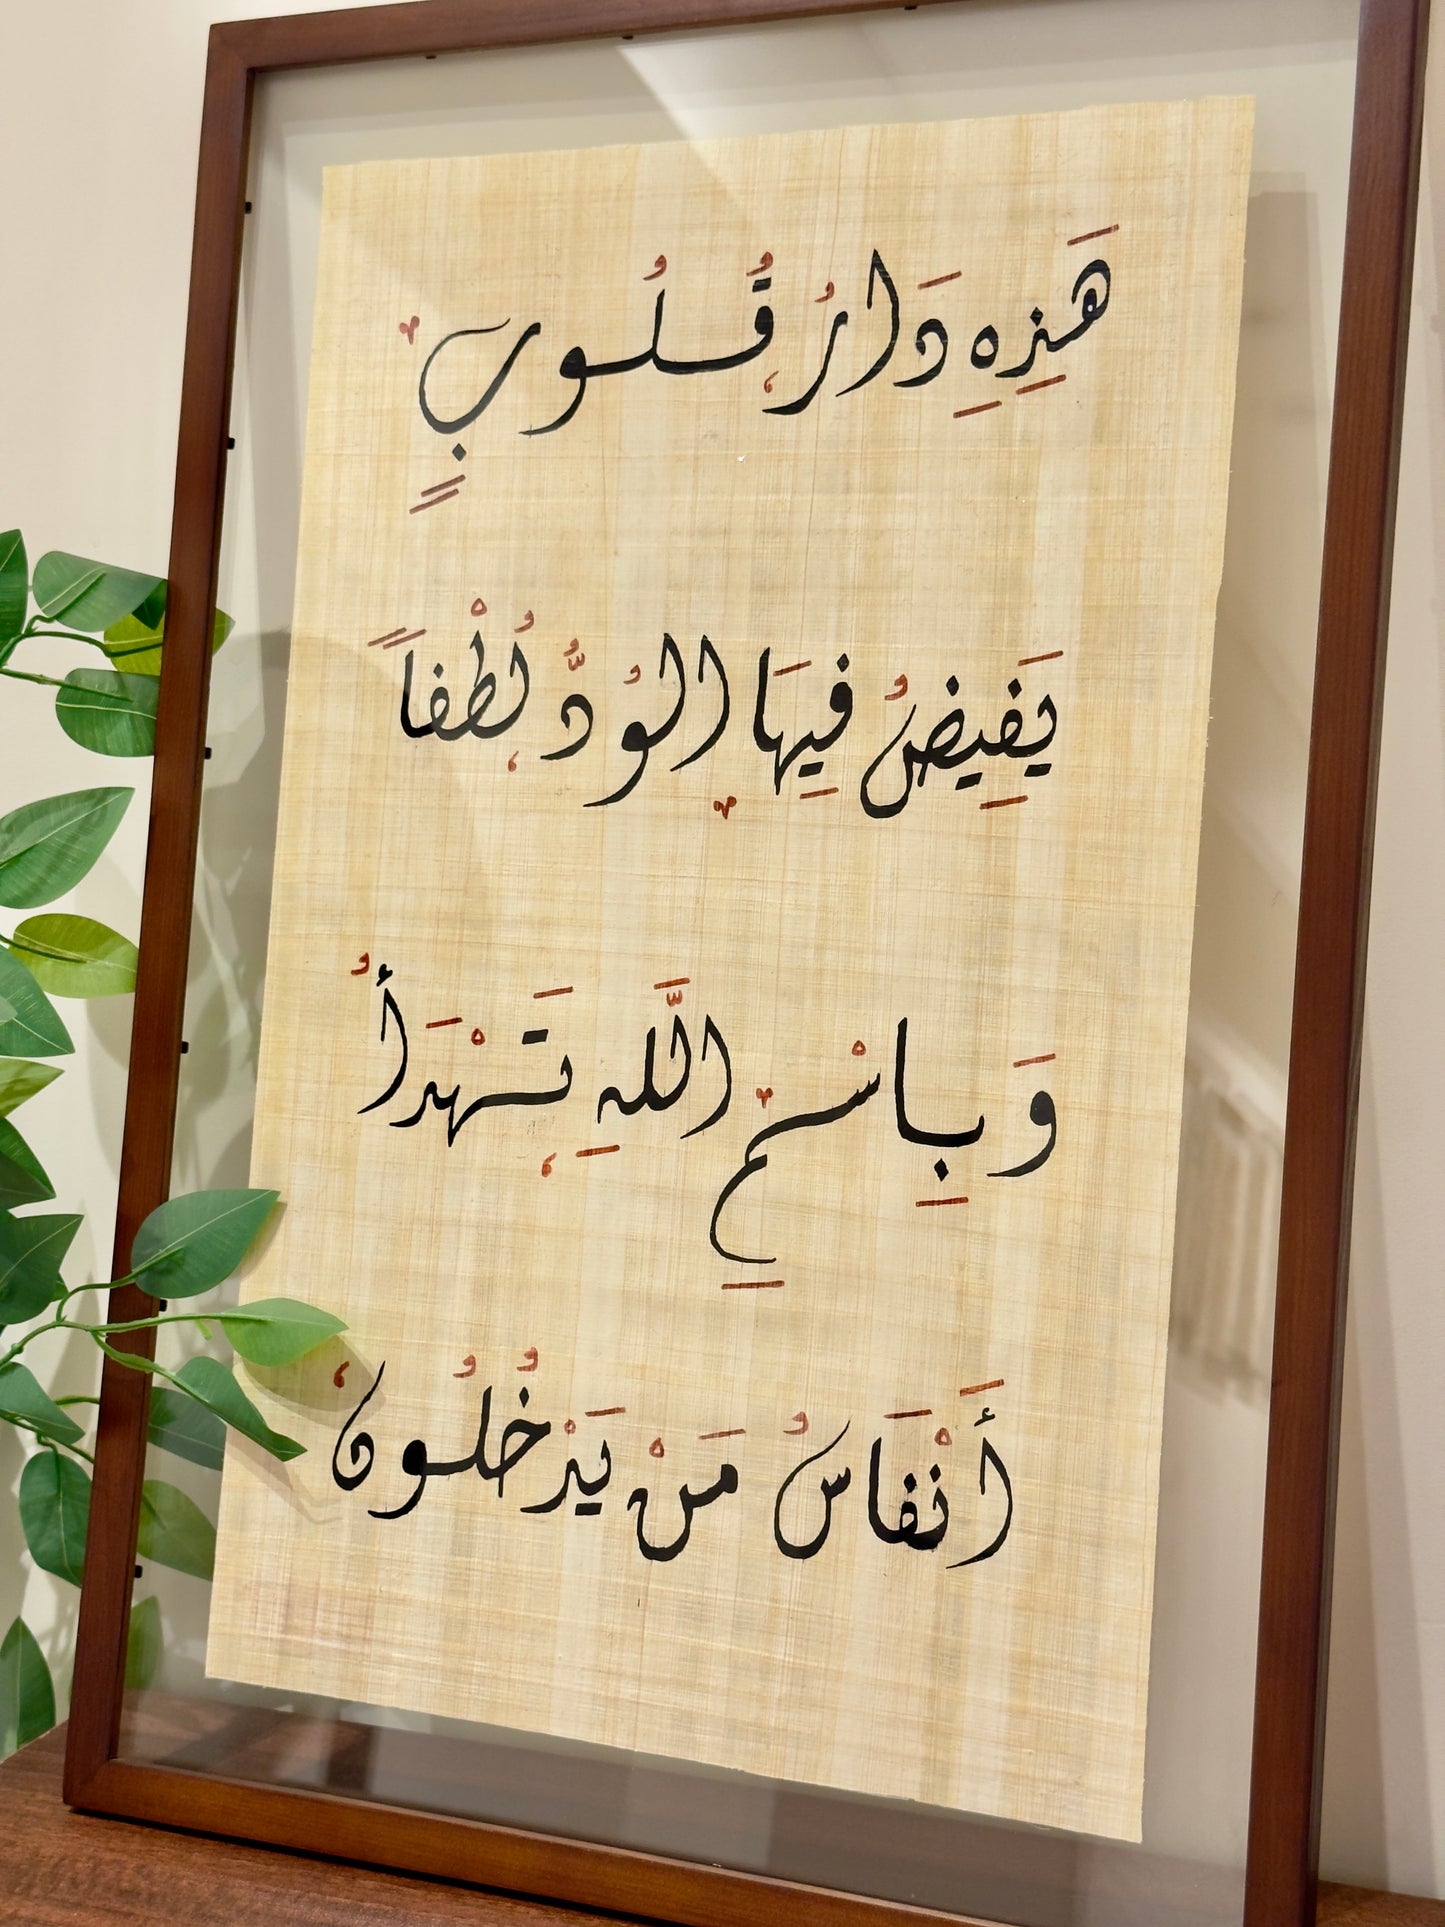 هَذِهِ دَارُ قُلُوبٍ
يَفِيضُ فِيهَا الوُدُّ لُطْفاً
وَبِاسْمِ اللَّهِ تَهْدَأُ
أَنْفَاسُ مَنْ يَدْخُلُون